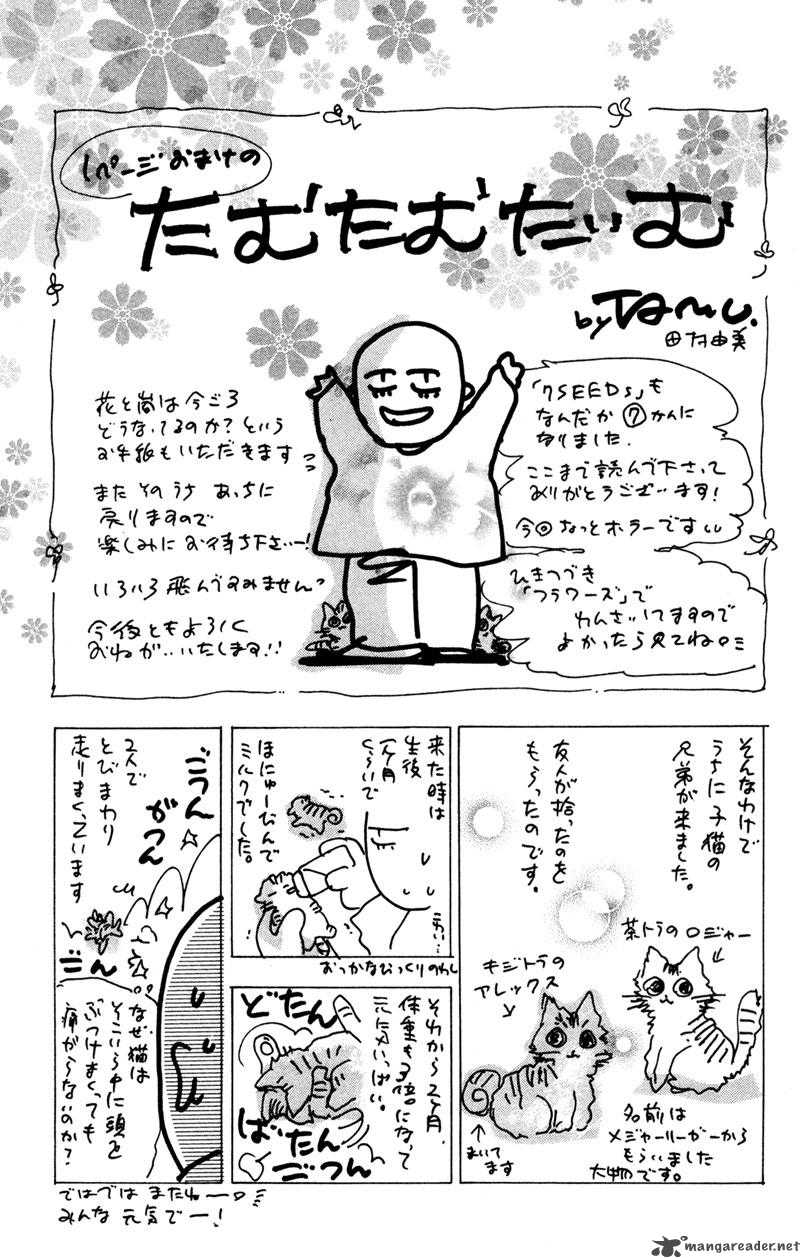 1ページおまけの
たむたむたいむ
by Tamu.
田村由美
「7SEEDS」も
なんだか⑦かんに
なりました.
ここまで読んで下さって
ありがとうございます!
今回なっとホラーです
ひきつづき
「フラワーズ」で
れんさいしてますので
よかったら見てね
花と嵐は今ごろ
どうなってるのか?という
お手紙もいただきます
またそのうち あっちに
戻りますので
楽しみにお待ち下さい—!
いろいろ飛んですみません
今後ともよろしく
おねがいいたします!!
そんなわけで
うちに子猫の
兄弟が来ました。
友人が拾ったのを
もらったのです。
茶トラのロジャー
キジトラの
アレックス
まいて
ます
名前は
メジャーリーガーから
もらいました
大物です。
来た時は
生後
1ヶ月
くらいで
ほにゅーびんで
ミルクでした。
おっかなびっくりのわし
それから2ヶ月、
体重も3倍になって
元気いっぱい。
どたん
ばたん
ごつん
ごうん
がつん
2人で
とびまわり
走りまくっています
ごん
なぜ猫は
そこいら中に頭を
ぶつけまくっても
痛がらないのか?
ではでは またねー
みんな 元気でー!
mangareader.net